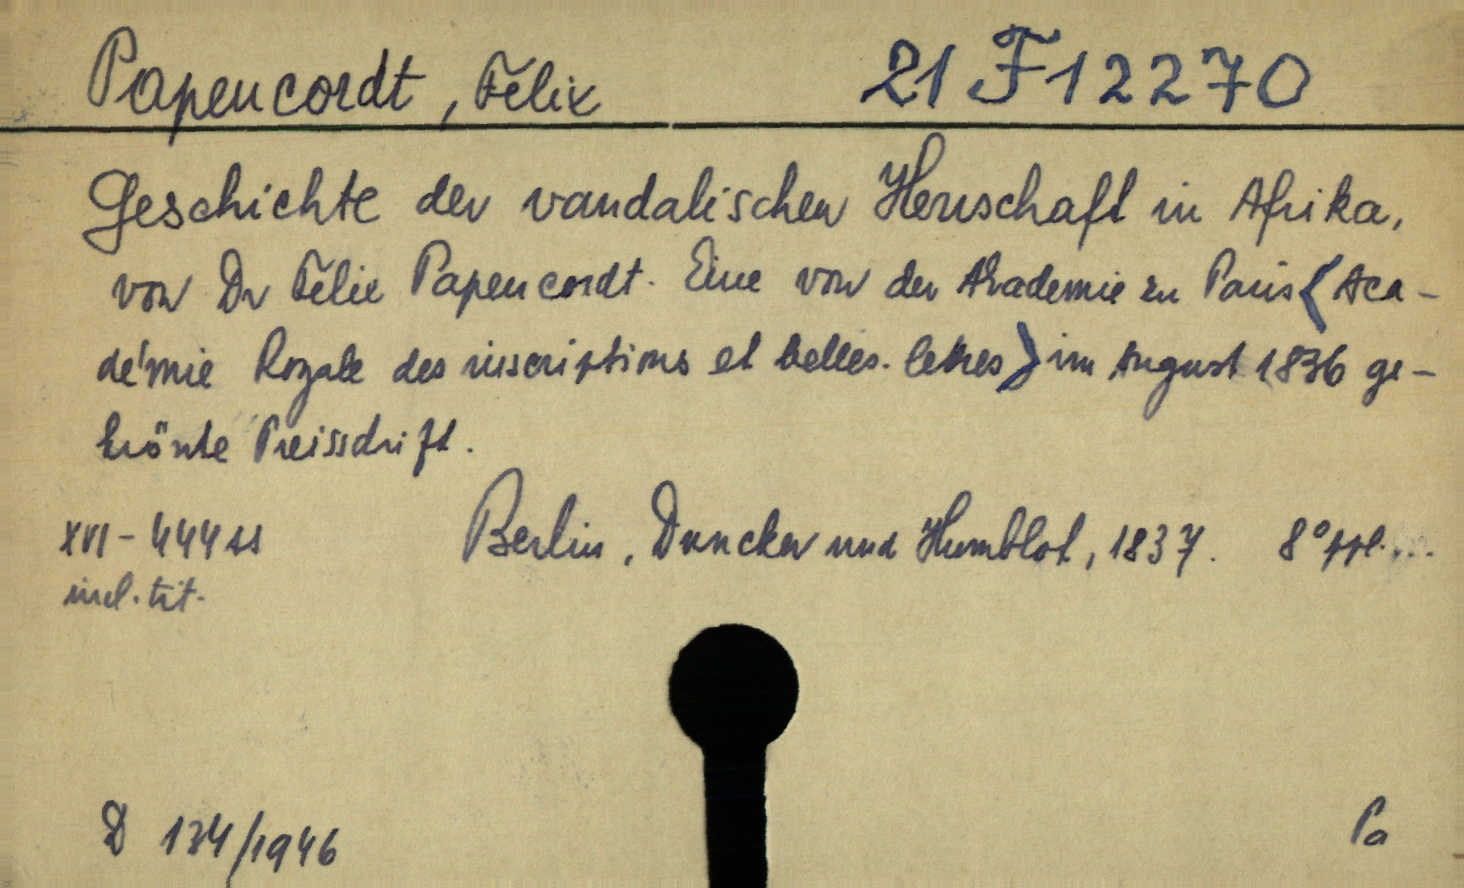 Papencordt, Felix 21 F 12270
Geschichte der vandalischen Herrschaft in Afrika,
von Dr Felix Papencordt. Eine von der Akademie zu Paris <Aca-
démie Royale des inscriptions et belles-lettres> im August 1836 ge-
krönte Preisschrift.
XVI-444 SS Berlin, Duncker und Humblot, 1837. 8° ppl...
incl. tit.
D 134/1946 Pa